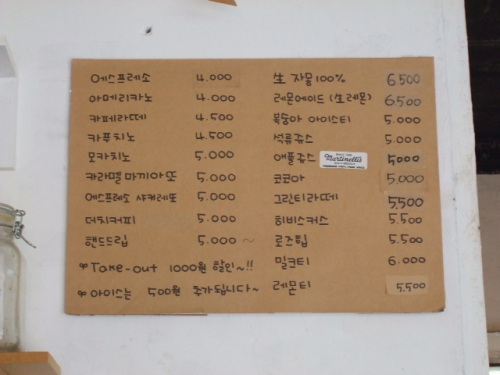 에스프레소 4.000
아메리카노 4.000
카페라떼 4.500
카푸치노 4.500
모카치노 5.000
카라멜마키아또 5.000
에스프레소 샤케레또 5.000
더치커피 5.000
핸드드립 5.000 ~
∞ Take-out 1000원 할인~!!
∞ 아이스는 500원 추가됩니다~
生 자몽100% 6.500
레몬에이드 (生레몬) 6.500
복숭아 아이스티 5.000
석류쥬스 5.000
애플쥬스 Martinelli's 5.000
코코아 5.000
그린티라떼 5.500
히비스커스 5.500
로즈힙 5.500
밀크티 6.000
레몬티 5.500